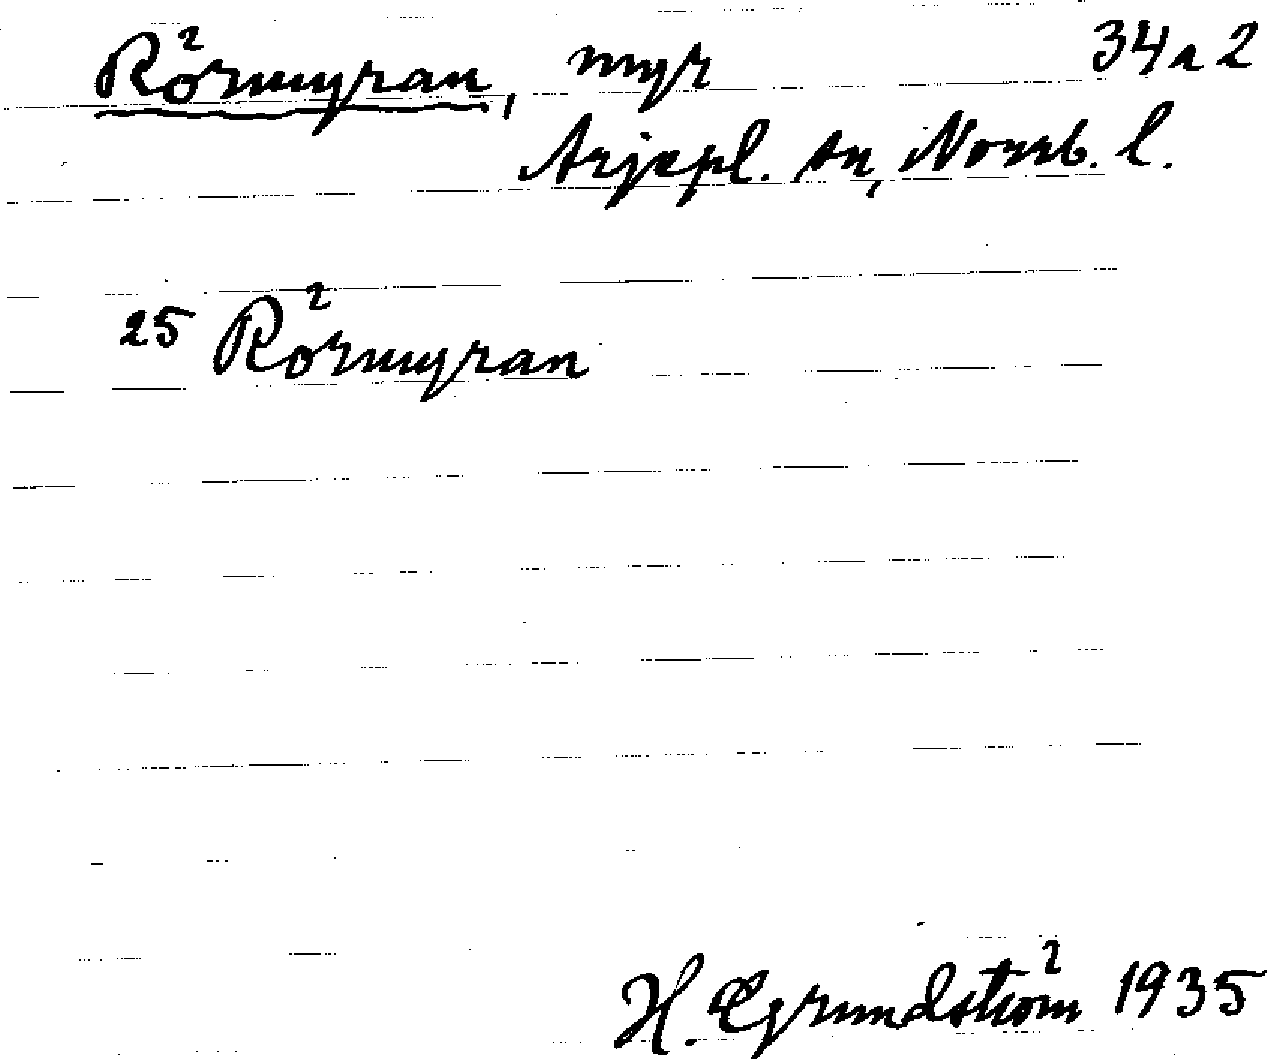 Rörmyran, myr 34 a 2
Arjepl. sn, Norrb. l.
25 Rörmyran
H. Grundström 1935